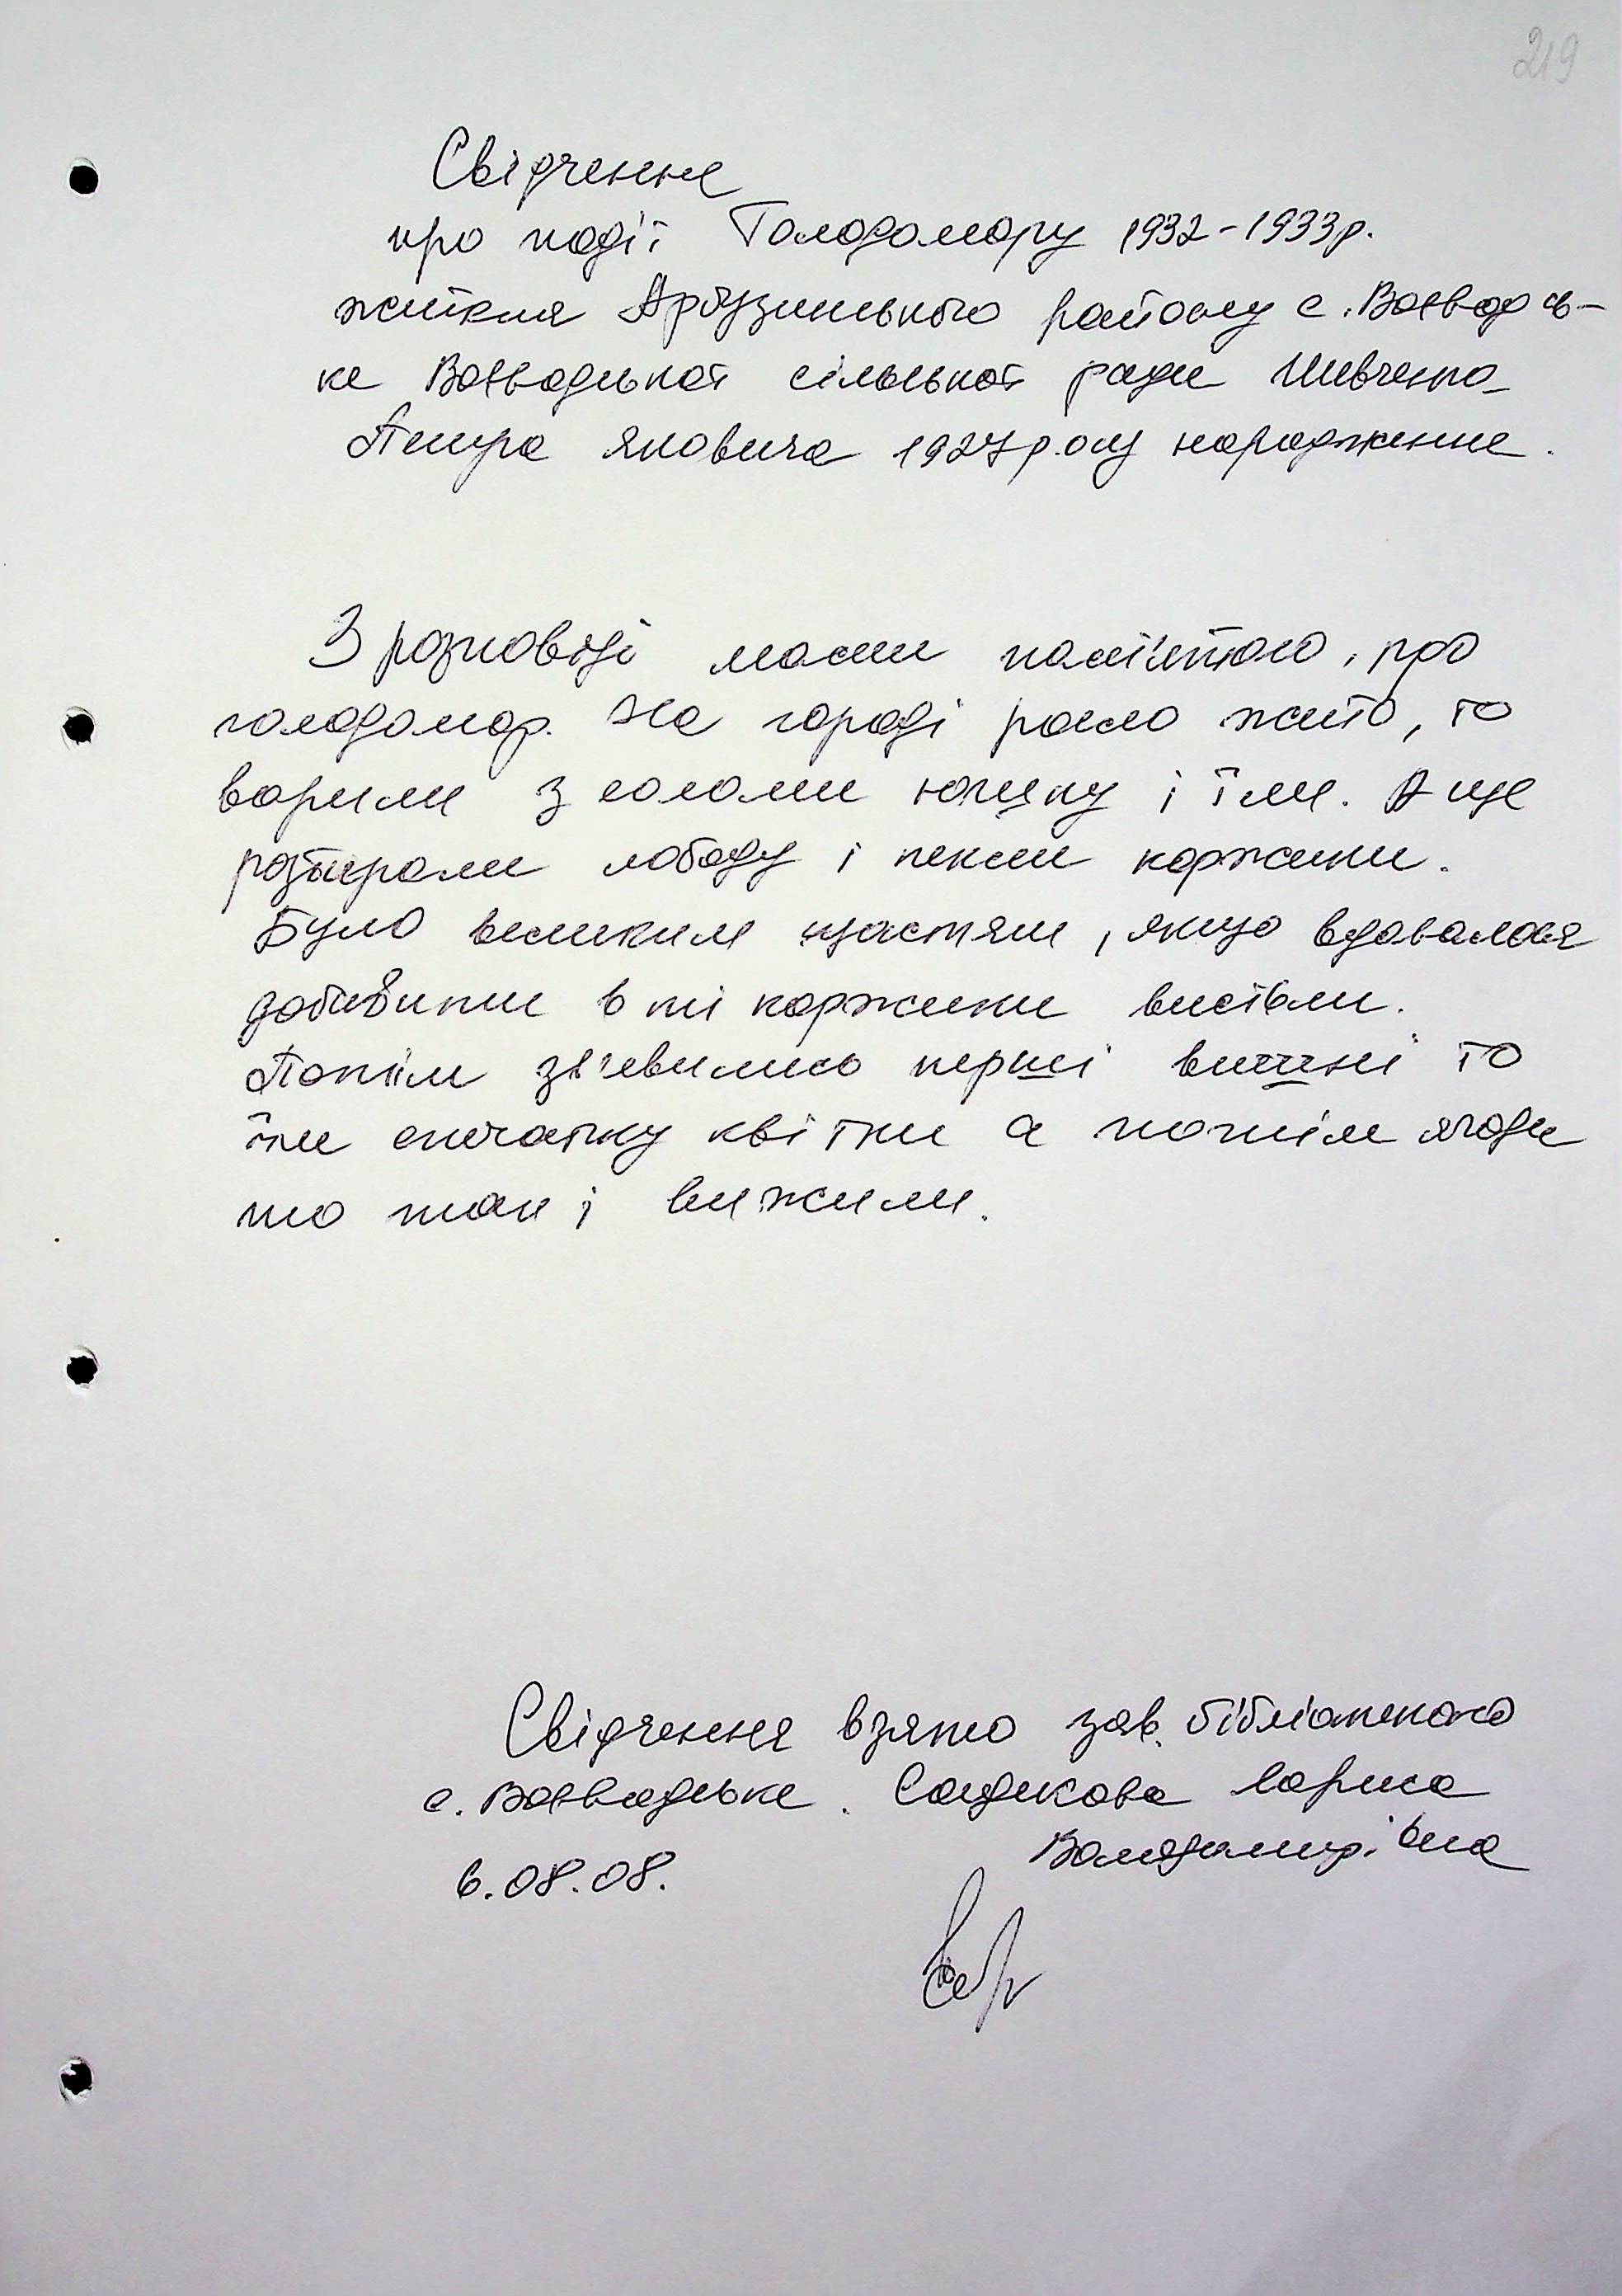 219
Свідчення
про події Голодомору 1932-1933р.
жителя Арбузинського району с. Воєводсь-
ке Воєводської сільської ради Шевченко
Петра Яковича 1927р.оку народження.
З розповіді мами пам'ятаю, про
голодомор. На городі росло жито, то
варили з соломи юшку і їли. А ще
розтирали лободу і пекли коржики.
Було великим щастям, якщо вдавалося
добавити в ті коржики висівки.
Потім з'явились перші вишні то
їли спочатку квітки а потім ягоди
то так і вижили.
Свідчення взято зав. бібліотекою
с. Воєводське. Садикова Лариса
Володимирівна
6.08.08.